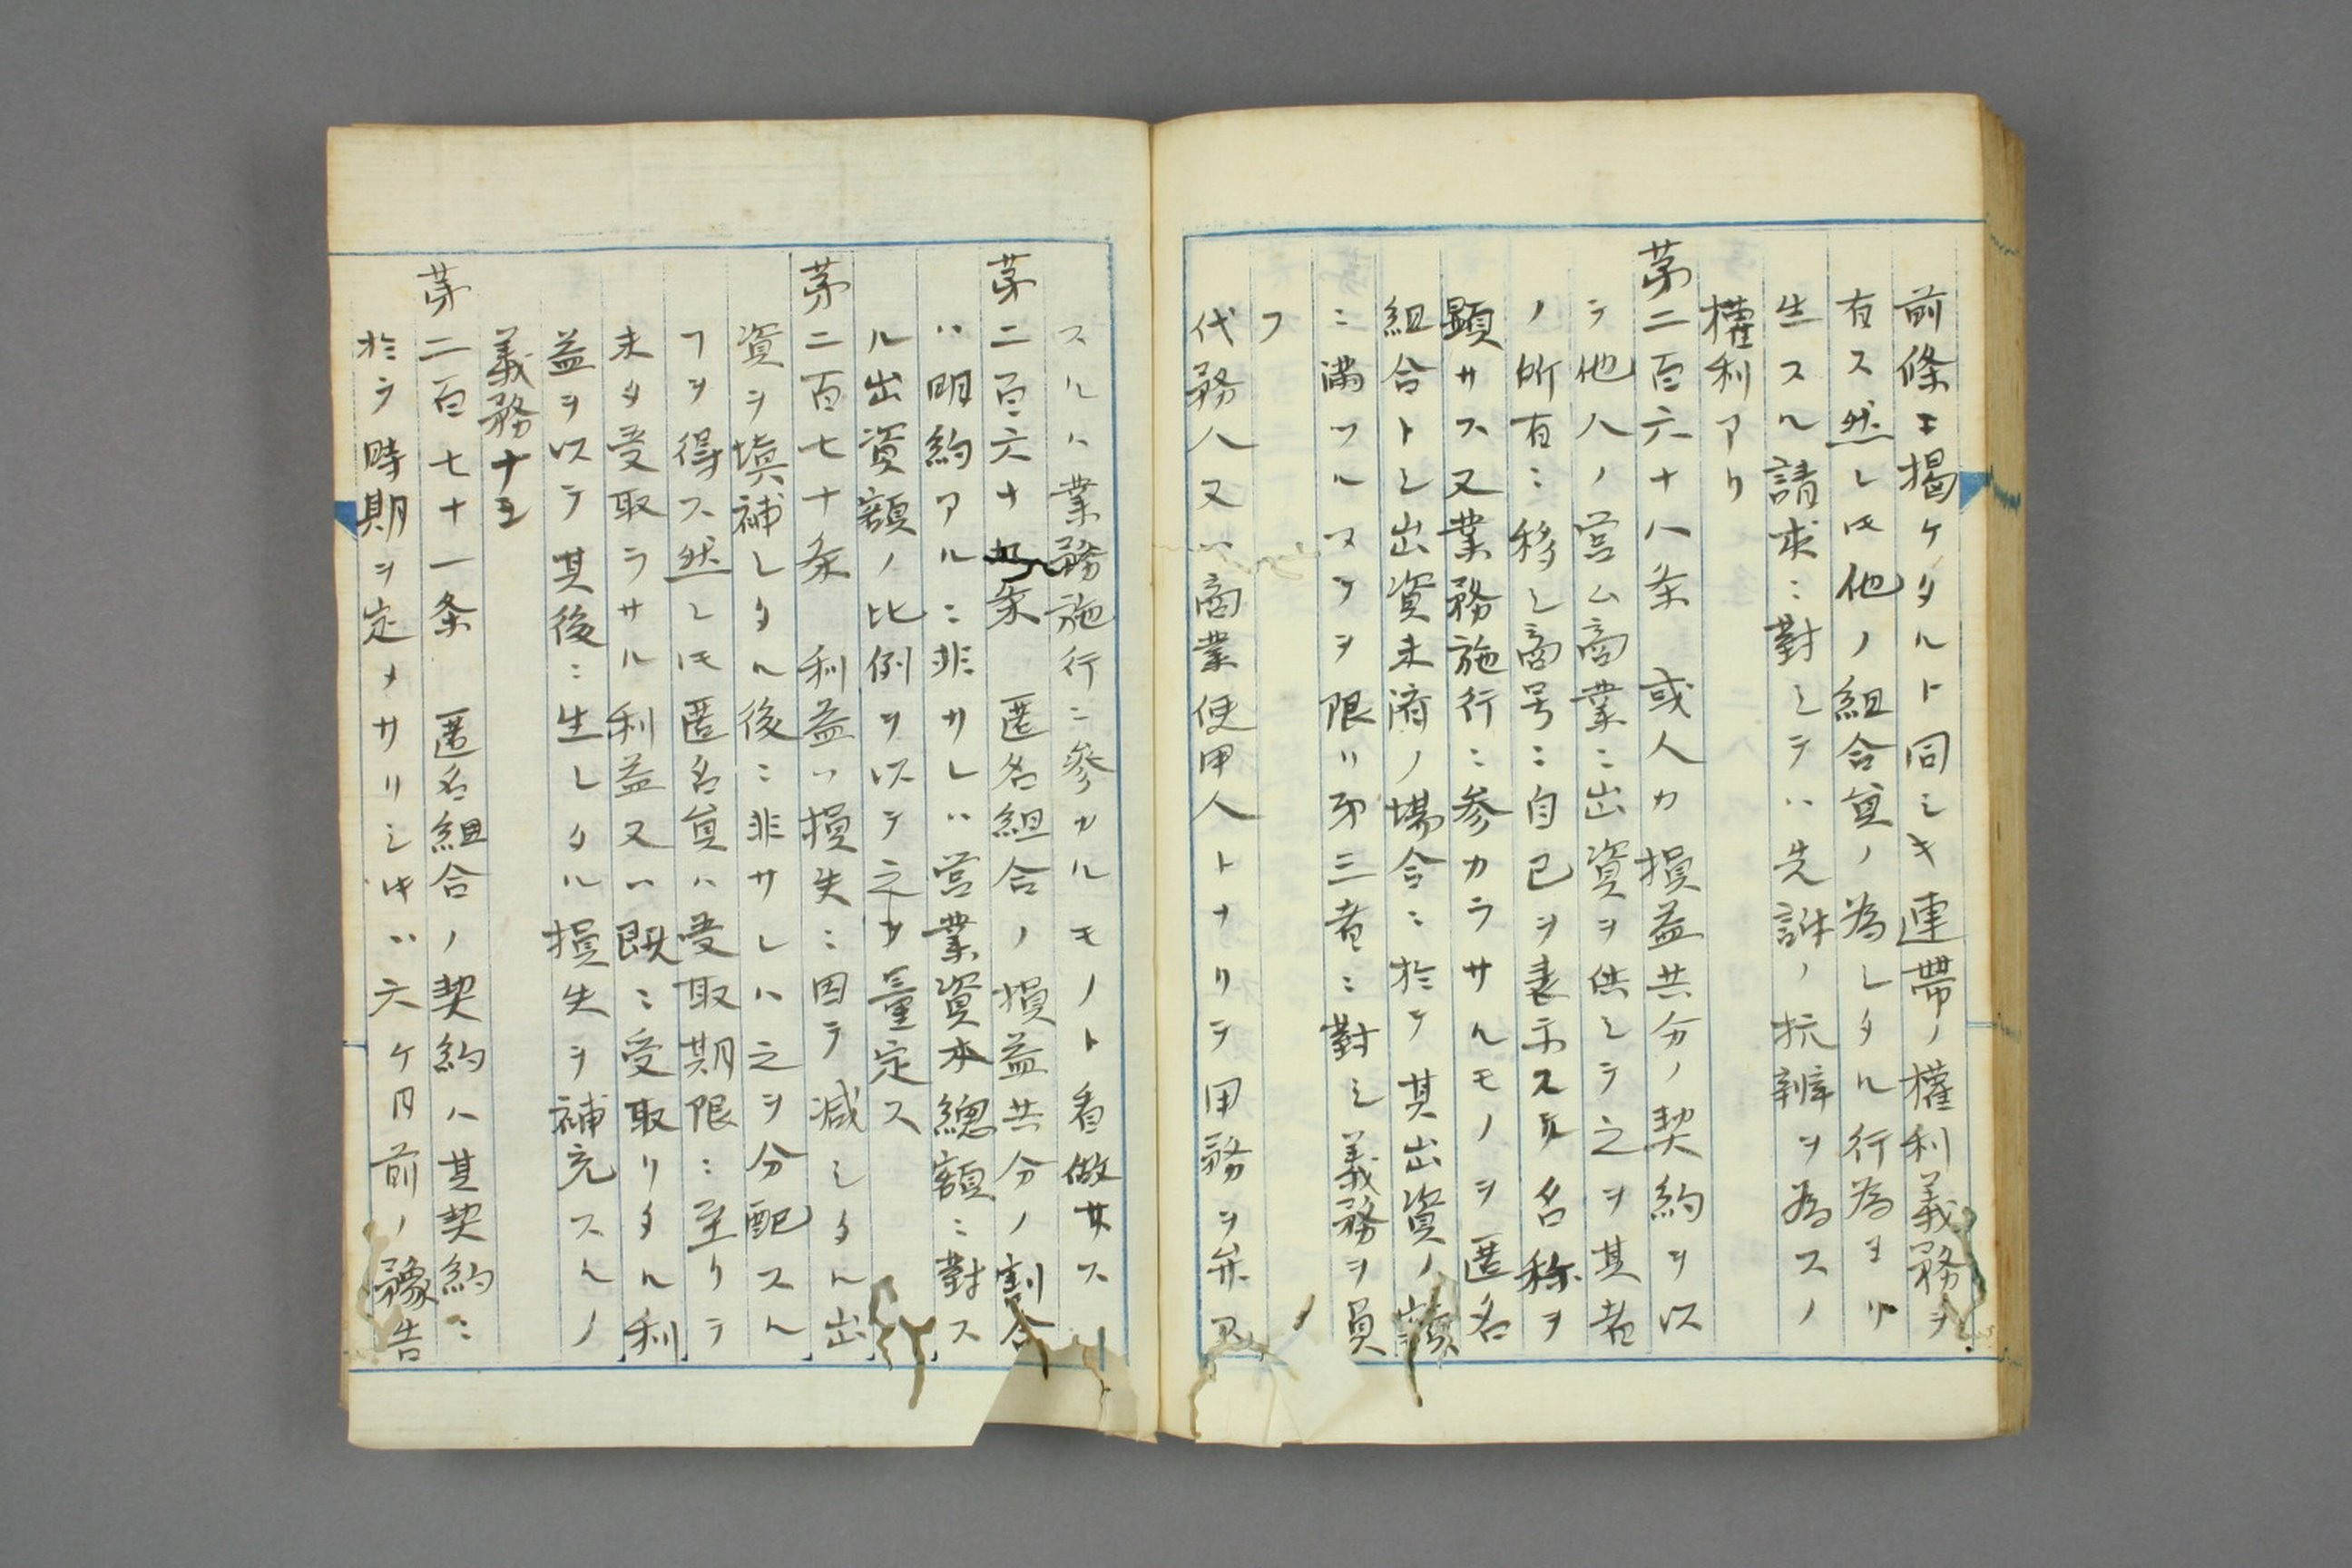 前條ニ掲ケタルト同シキ連帶ノ權利義務ヲ
有ス然レ𪜈他ノ組合員ノ為シタル行為ヨリ
生スル請求ニ對シテハ先訴ノ抗辨ヲ為スノ
權利アリ
第二百六十八条　或人カ損益共分ノ契約ヲ以
テ他人ノ営ム商業ニ出資ヲ供シテ之ヲ其者
ノ所有ニ移シ商号ニ自己ヲ表示スル名称ヲ
顕サス又業務施行ニ参カラサルモノヲ匿名
組合トシ出資未済ノ場合ニ於テ其出資ノ額
ニ満ツルマテヲ限リ第三者ニ對シ義務ヲ負
フ
代務人又ハ商業使用人トナリテ用務ヲ弁ス
スルハ業務施行ニ參カルモノト看做サス
第二百六十九条　匿名組合ノ損益共分ノ割合
ハ明約アルニ非サレハ営業資本總額ニ對ス
ル出資額ノ比例ヲ以テ之ヲ量定ス
第二百七十条　利益ハ損失ニ因テ減シタル出
資ヲ填補シタル後ニ非サレハ之ヲ分配スル
ヿヲ得ス然レ𪜈匿名員ハ受取期限ニ至リテ
未タ受取ラサル利益又ハ既ニ受取リタル利
益ヲ以テ其後ニ生シタル損失ヲ補充スルノ
義務ナシ
第二百七十一条　匿名組合ノ契約ハ其契約ニ
於テ時期ヲ定メサリシ𪜈ハ六ケ月前ノ豫告